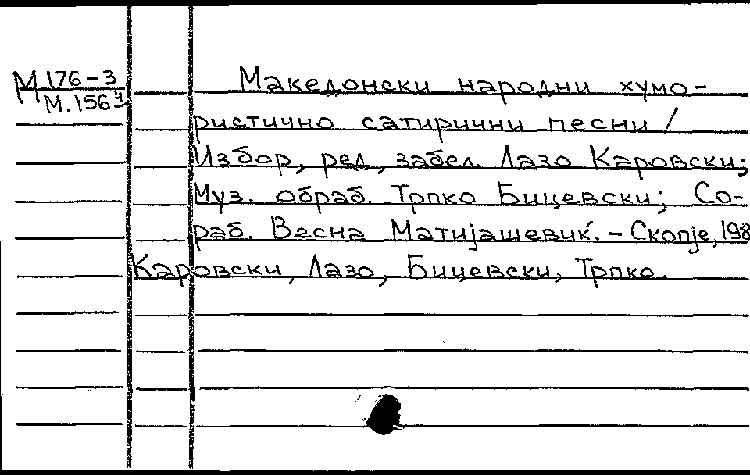 М 176-3
М.156³
Македонски народни хумо-
ристично сатирични песни /
Избор, ред, забел. Лазо Каровски;
Муз. обраб. Трпко Бицевски; Со-
раб. Васна Матијашевиќ. - Скопје, 198
Каровски, Лазо, Бицевски, Трпко.